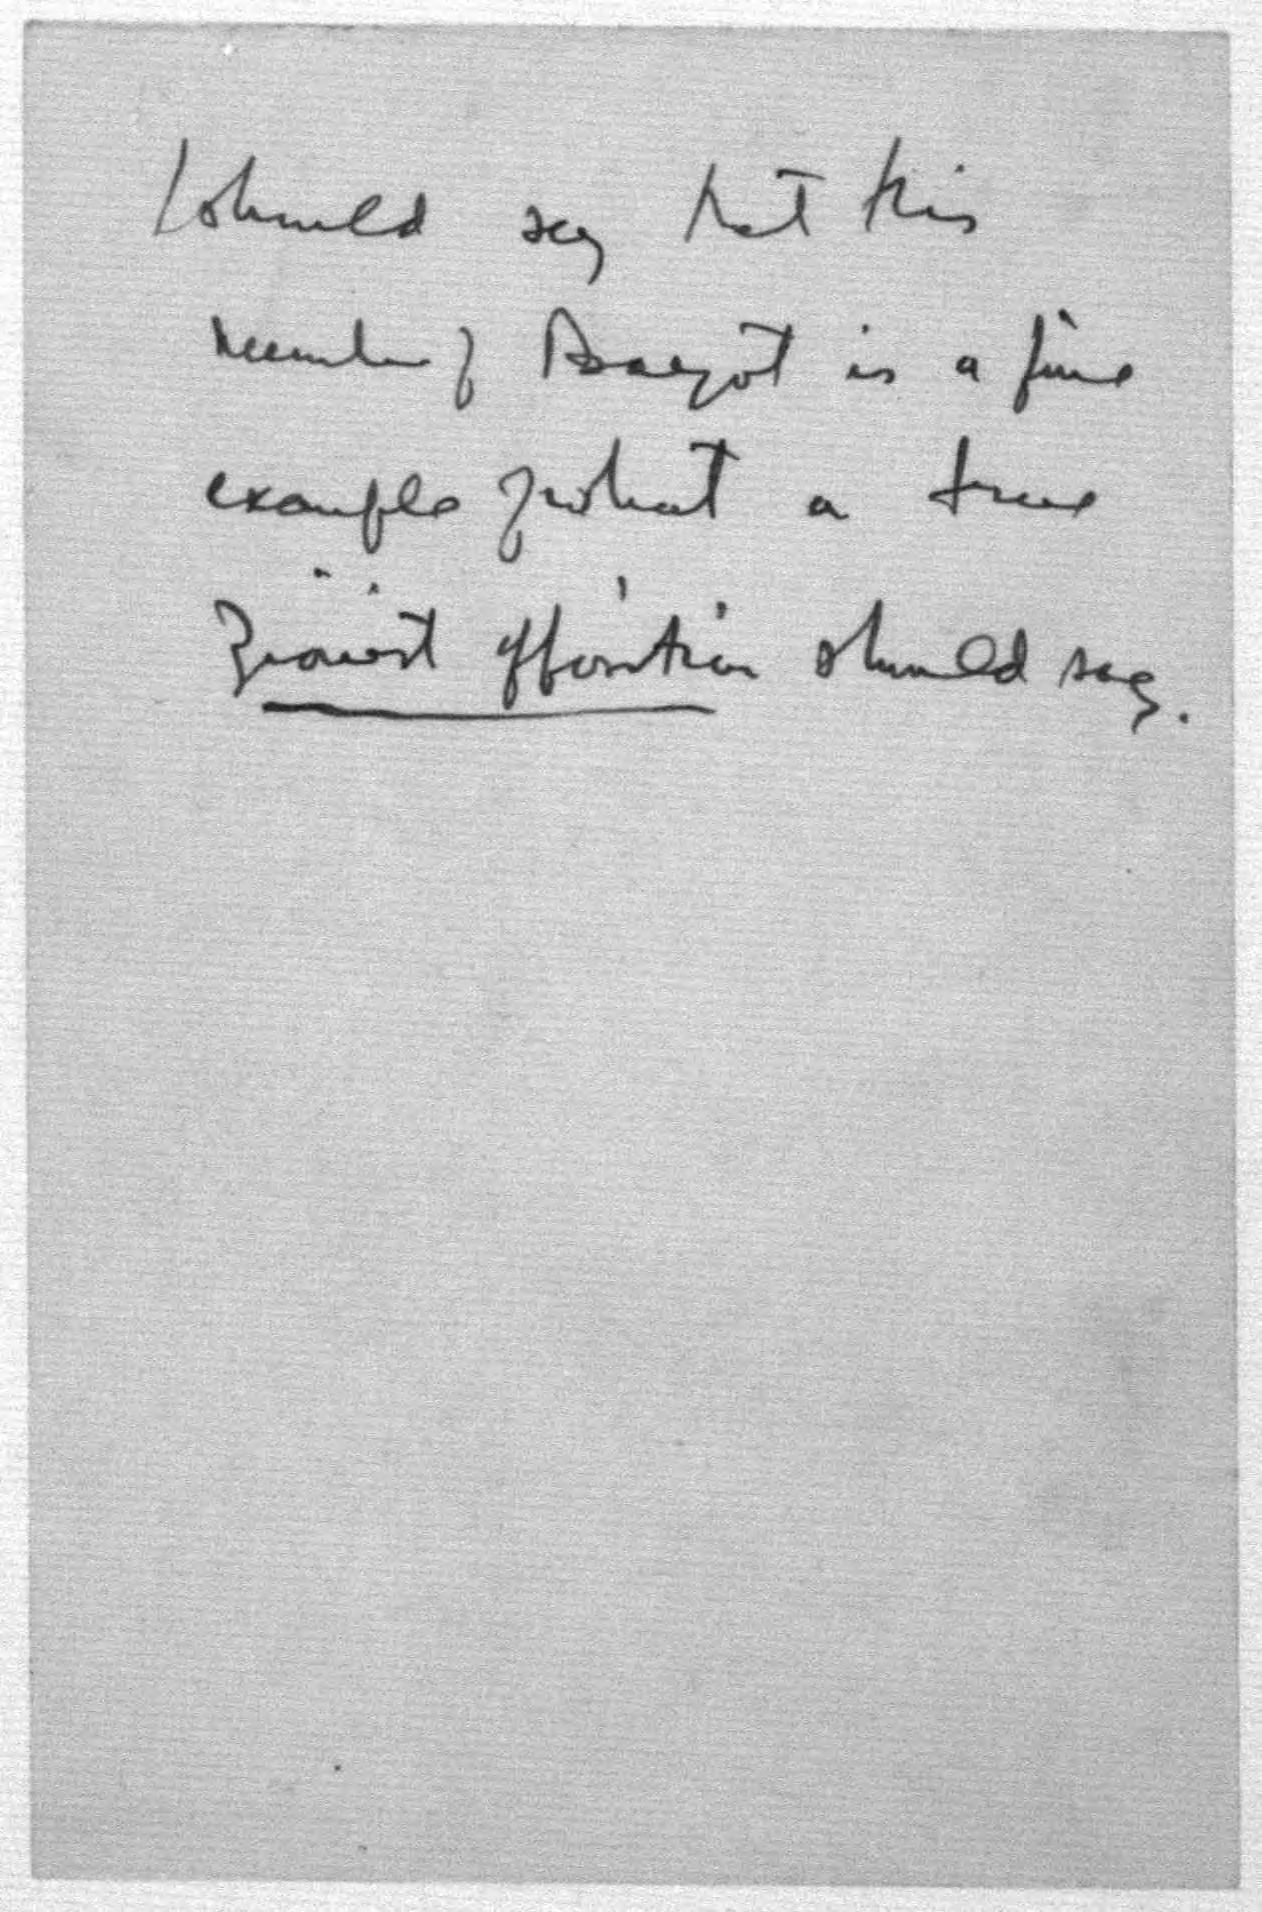 I should say that this
number of Baayot is a fine
example of what a true
Zionist opposition should say.